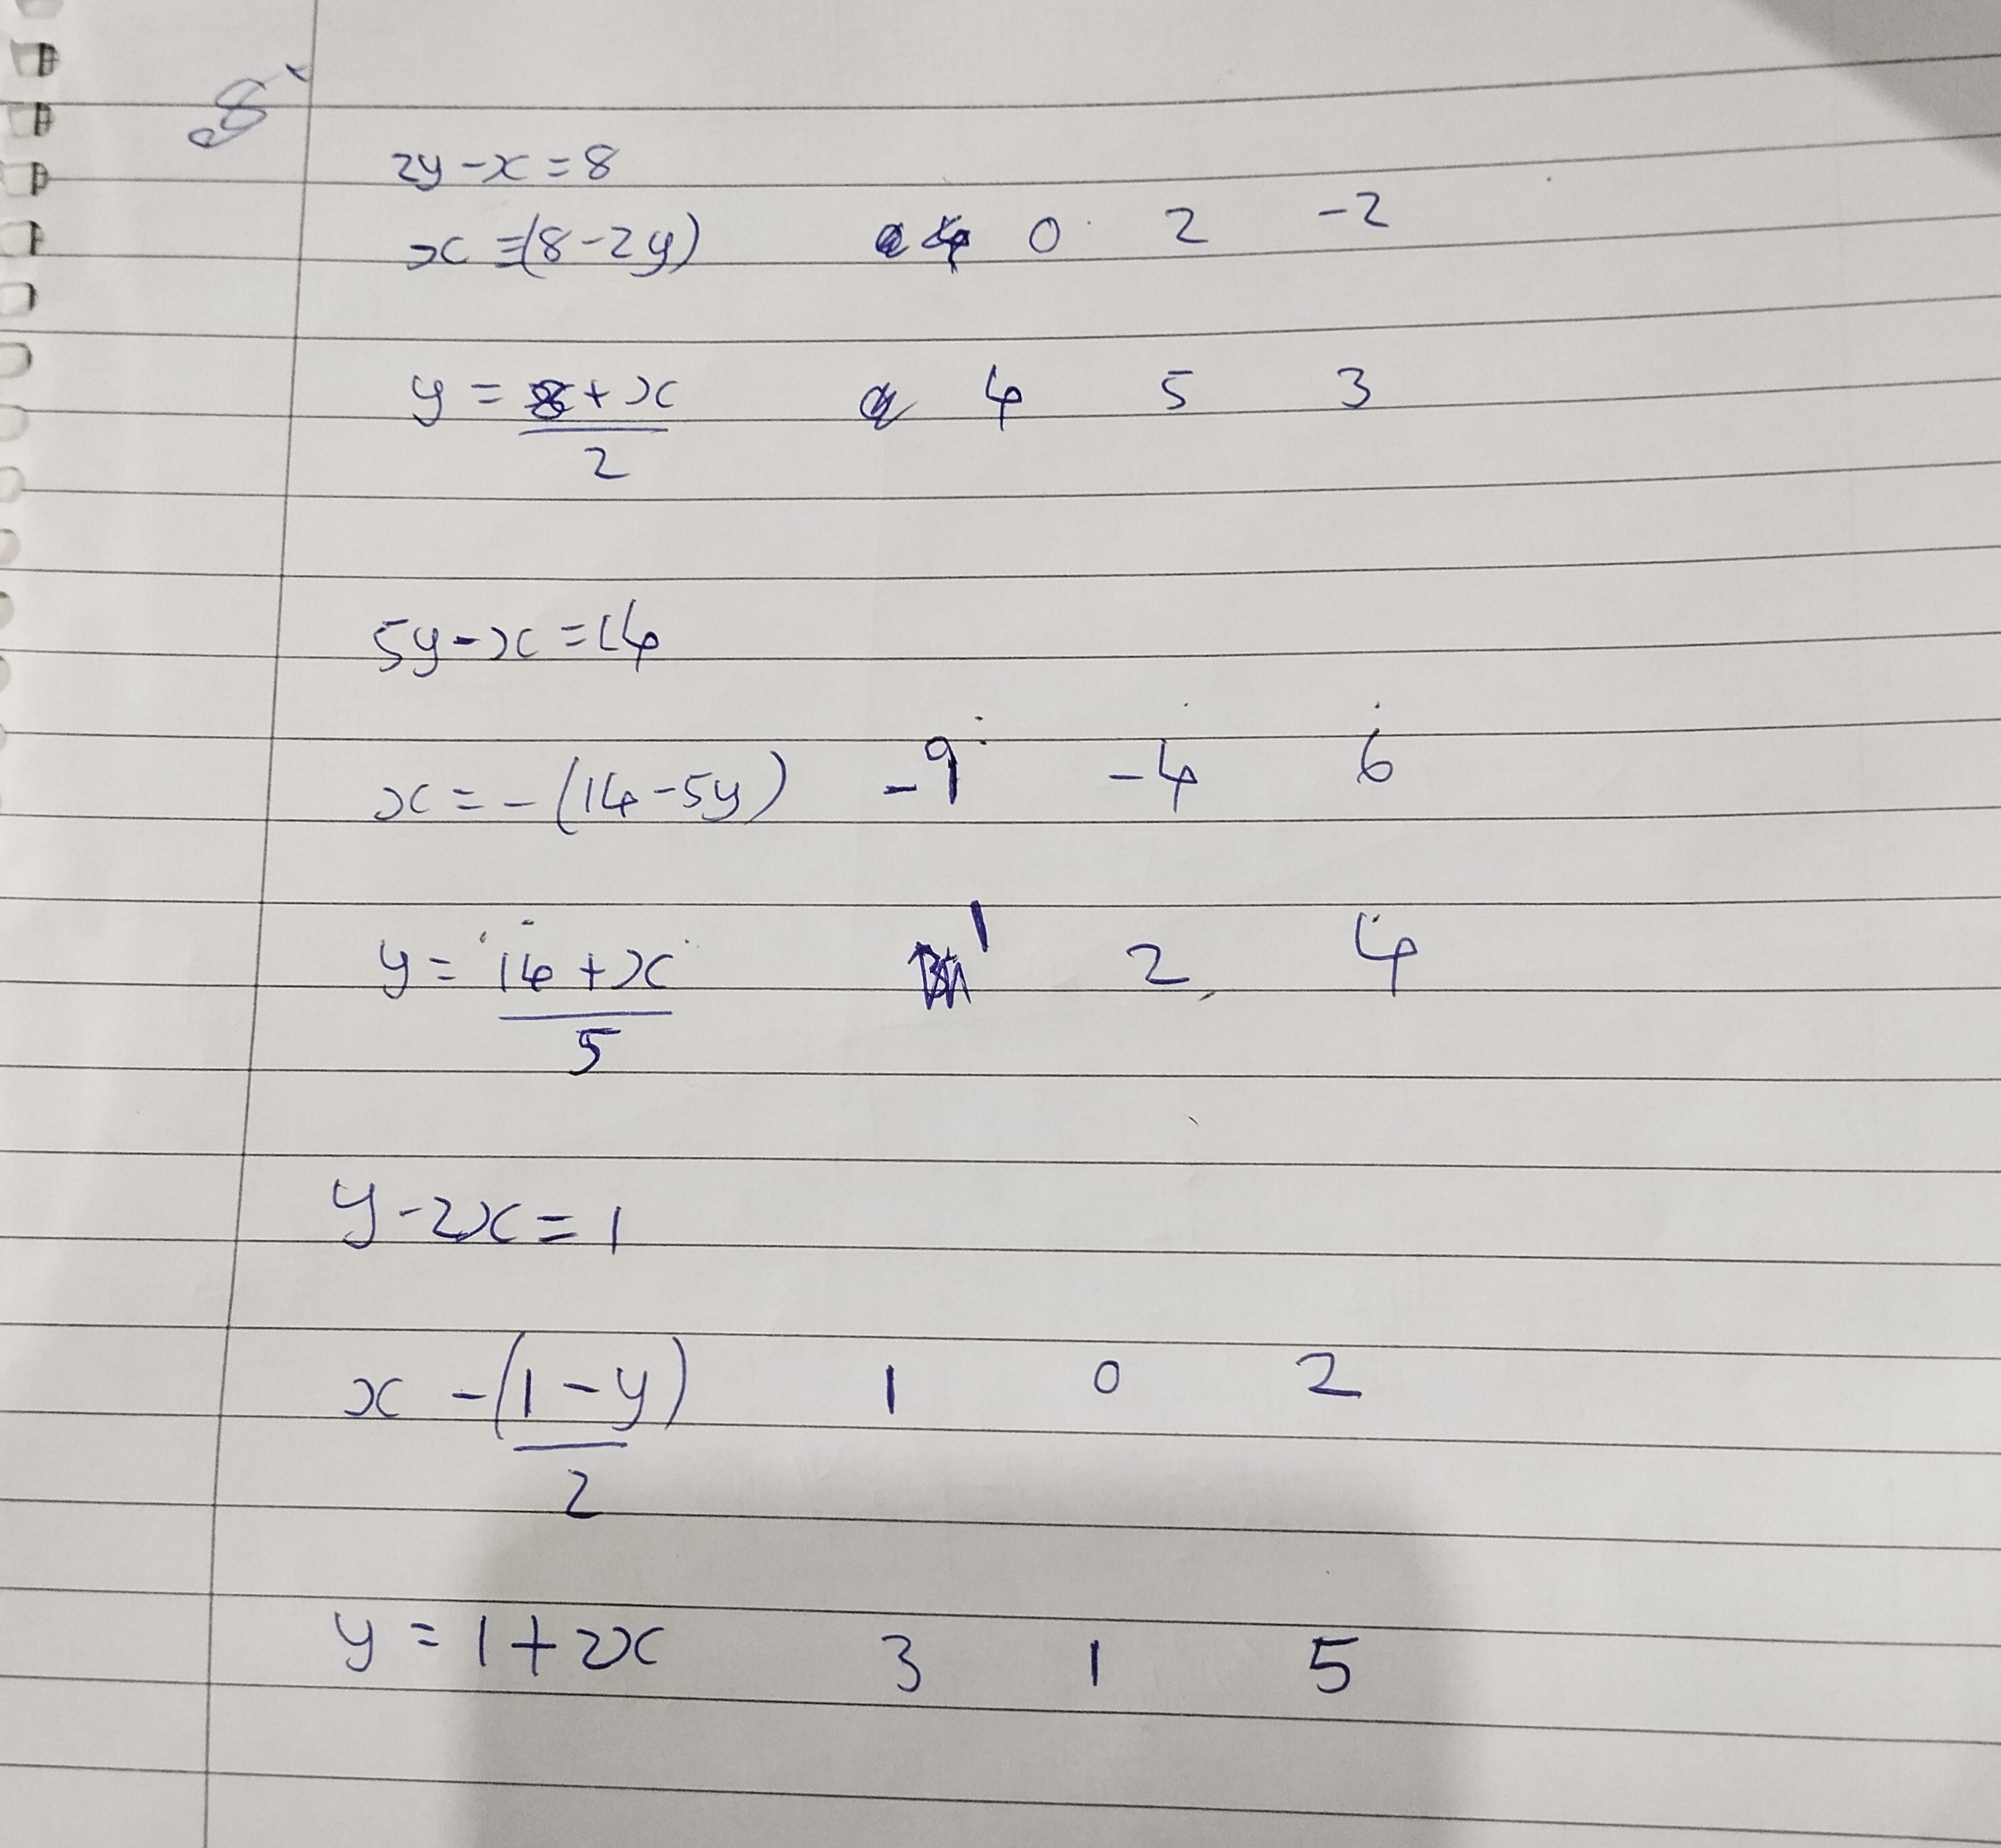 8
2y - x = 8
x = (8 - 2y) 0 2 -2
y = 8 + x 4 5 3
2
5y - x = 14
x = - (14 - 5y) -9 -4 6
y = 14 + x 1 2 4
5
y - 2x = 1
x - (1 - y) 1 0 2
2
y = 1 + 2x 3 1 5